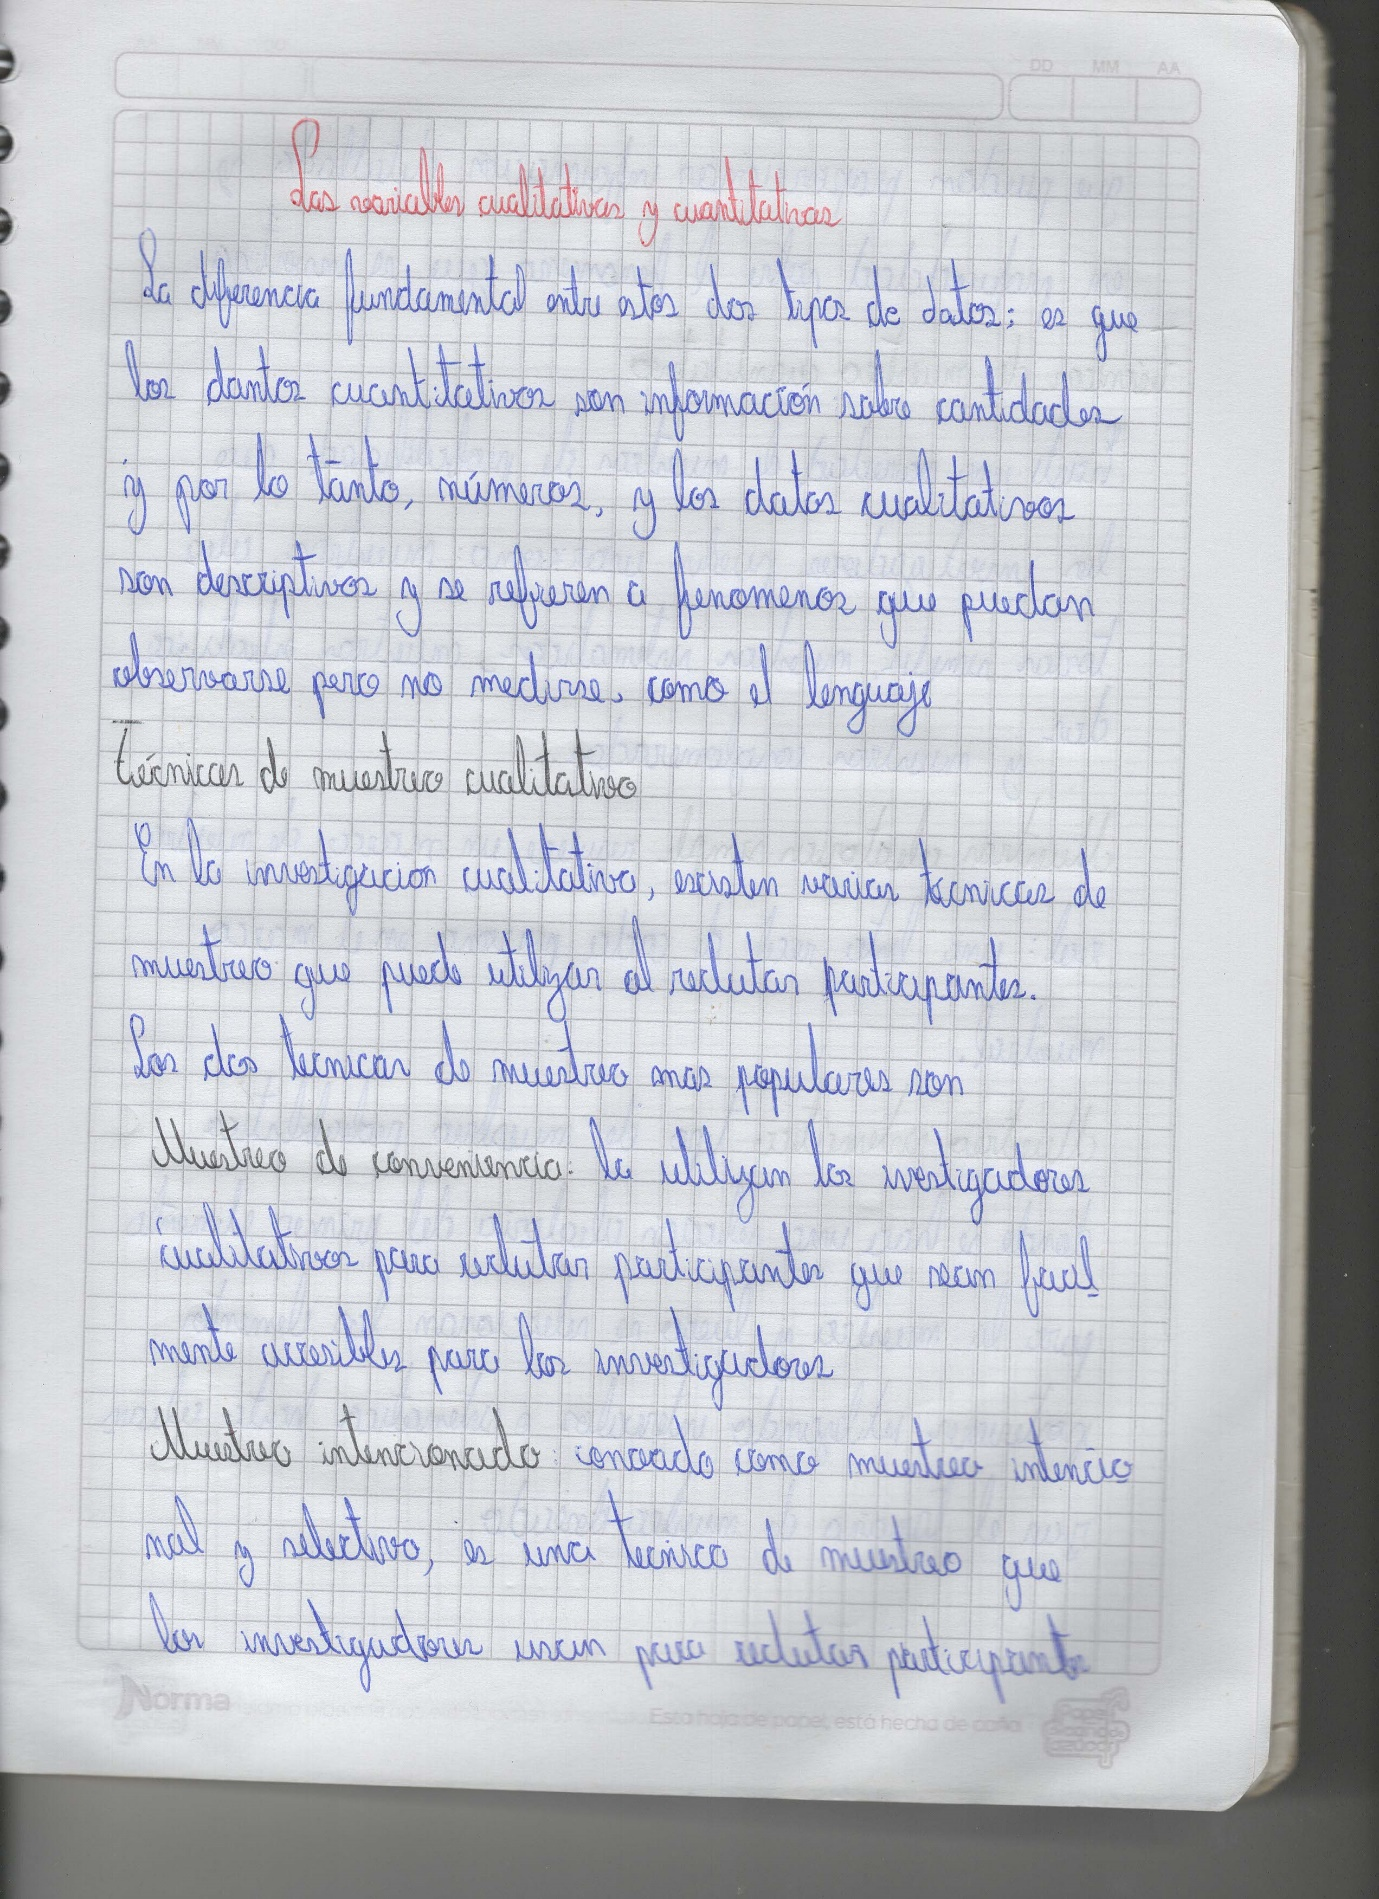 DD MM AA
Las variables cualitativas y cuantitativas
La diferencia fundamental entre estos dos tipos de datos: es que
los dantos cuantitativos son información sobre cantidades
y por lo tanto, números, y los datos cualitativos
son descriptivos y se refieren a fenomenos que puedan
observarse pero no medirse, como el lenguaje
Técnicas de muestreo cualitativo
En la investigacion cualitativa, existen varias tecnicas de
muestreo que puede utilizar al reclutar participantes.
Las dos tecnicas de muestreo mas populares son
Muestreo de conveniencia: la utilizan los ivestigadores
cualitativos para reclutar participantes que sean facil
mente accesibles para los investigadores
Muestreo intencionado: conocido como muestreo intencio
nal y selectivo, es una tecnica de muestreo que
los investigadores usan para reclutar participantes
Norma
Esta hoja de papel, está hecha de caña